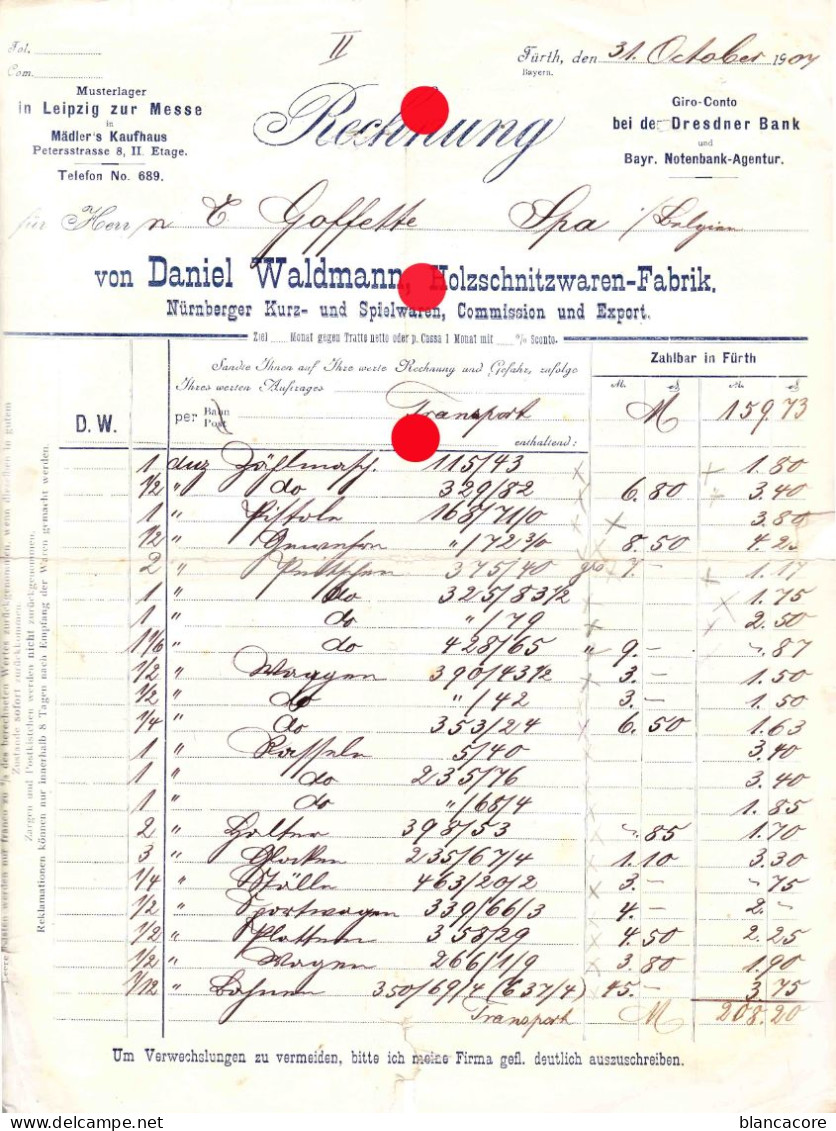 II
Fol.
Com.
Fürth, den 31. October 1907
Bayern.
Musterlager
in Leipzig zur Messe
in
Mädler's Kaufhaus
Petersstrasse 8, II. Etage.
Telefon No. 689.
Rechnung
Giro-Conto
bei der Dresdner Bank
und
Bayr. Notenbank-Agentur.
für Herrn C Goffette Spa i/Belgien
von Daniel Waldmann, Holzschnitzwaren-Fabrik,
Nürnberger Kurz- und Spielwaren, Commission und Export.
Ziel Monat gegen Tratte netto oder p. Cassa 1 Monat mit % Sconto.
Sandte Ihnen auf Ihre werte Rechnung und Gefahr, zufolge
Ihres werten Auftrages
Zahlbar in Fürth
D. W.
per Bahn Post Transport M 159.73
enthaltend:
1 duz 115/43 1.80
1/2 " do 329/82 6.80 3.40
1 " Pistole 168/71/0 3.80
1/2 " Gewehre "/172 8.50 4.25
2 " 375/40 gro 7.- 1.17
1 " do 325/83 1/2 1.75
1 " do "/79 2.50
1 1/6 " do 428/65 " 9.- -.87
1/2 " Wagen 390/43 1/2 3.- 1.50
1/2 " do "/42 3.- 1.50
1/4 " do 353/24 6.50 1.63
1 " Rasseln 5/40 3.40
1 " do 235/76 3.40
1 " do "/68/4 1.85
2 " Halter 398/53 -.85 1.70
3 " Glocken 235/67/4 1.10 3.30
1/4 " Ställe 463/20/2 3.- -75
1/2 " Sportwagen 339/66/3 4.- 2.-
1/2 " 353/29 4.50 2.25
1/2 " Wagen 266/1/9 3.80 1.90
1/12 " 350/69/4 (637/4) 45.- 3.75
Transport M 208.20
Um Verwechslungen zu vermeiden, bitte ich meine Firma gefl. deutlich auszuschreiben.
Zustande sofort zurückkommen.
Zargen und Postkistchen werden nicht zurückgenommen.
Reklamationen können nur innerhalb 8 Tagen nach Empfang der Waren gemacht werden.
blancacore